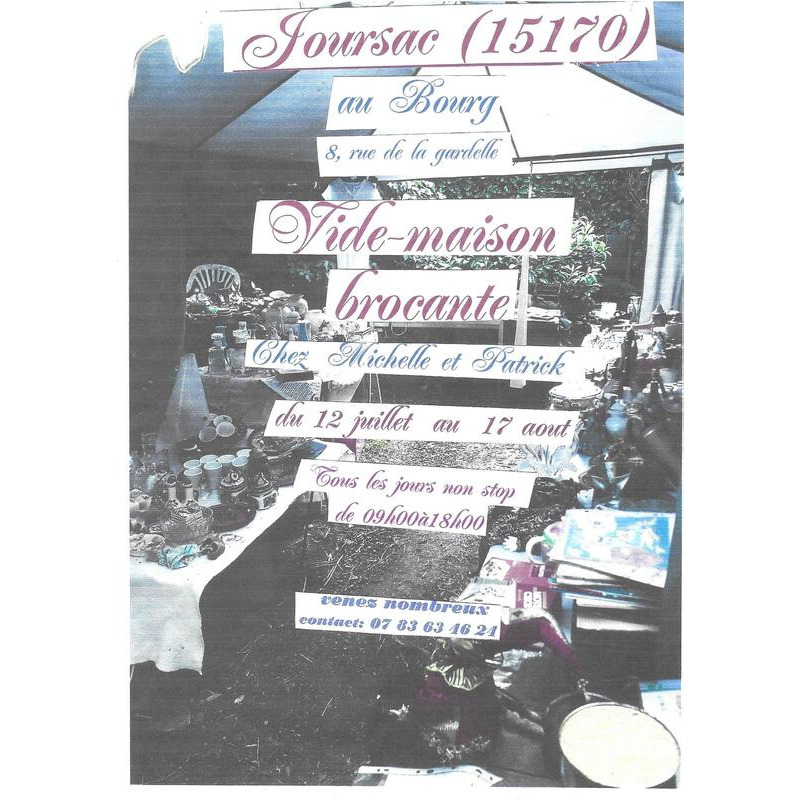 Joursac (15170)
au Bourg
8, rue de la gardelle
Vide-maison
brocante
Chez Michelle et Patrick
du 12 juillet au 17 aout
Tous les jours non stop
de 09h00à18h00
venez nombreux
contact: 07 83 63 46 24